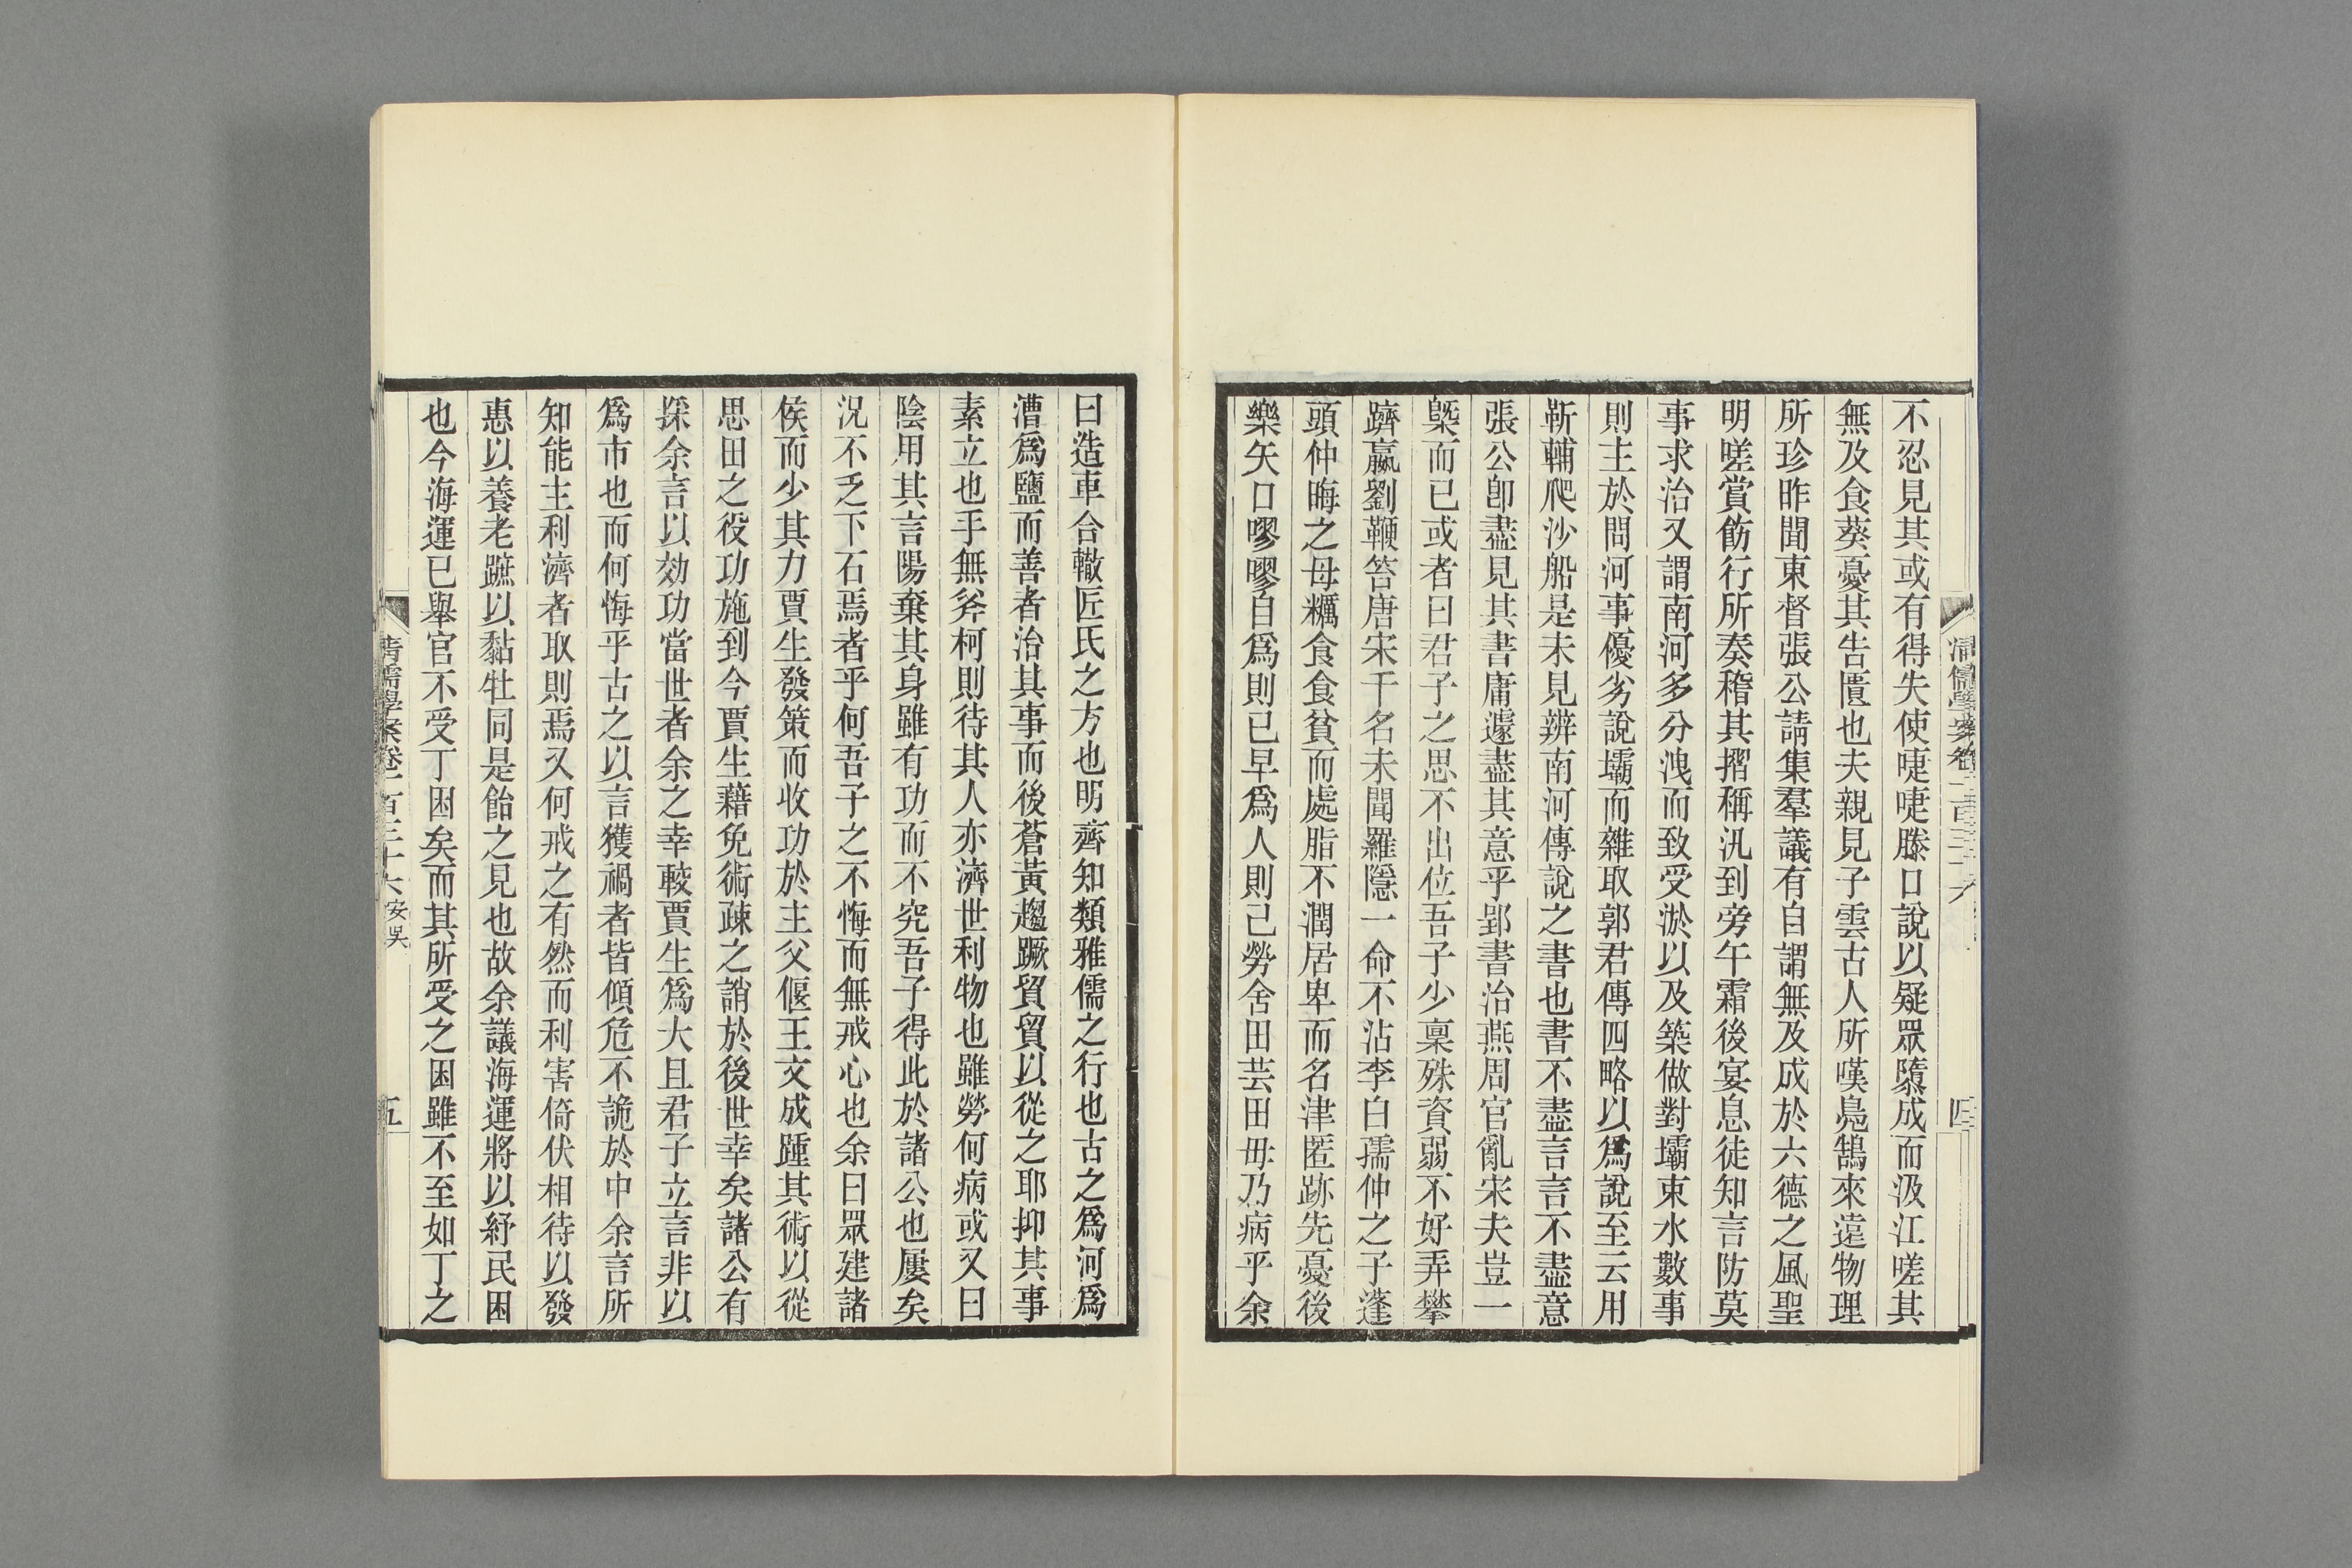 清儒學案卷一百三十六
四
不忍見其或有得失使啑啑滕口說以疑眾隳成而汲江嗟其
無及食葵憂其吿匱也夫親見子雲古人所嘆鳧鵠來遠物理
所珍昨聞東督張公請集羣議有自謂無及成於六德之風聖
明嗟賞飭行所奏稽其摺稱汎到旁午霜後宴息徒知言防莫
事求治又謂南河多分洩而致受淤以及築做對壩束水數事
則主於問河事優劣說壩而雜取郭君傳四略以爲說至云用
靳輔爬沙船是未見辨南河傳說之書也書不盡言言不盡意
張公卽盡見其書庸遽盡其意乎郢書治燕周官亂宋夫豈一
槩而已或者曰君子之思不出位吾子少稟殊資弱不好弄攀
躋嬴劉鞭笞唐宋干名未聞羅隱一命不沾李白孺仲之子蓬
頭仲晦之母糲食食貧而處脂不潤居卑而名津匿跡先憂後
樂矢口嘐嘐自爲則已早爲人則已勞舍田芸田毋乃病乎余
曰造車合轍匠氏之方也明齊知類雅儒之行也古之爲河爲
漕爲鹽而善者治其事而後蒼黃趨蹶貿貿以從之耶抑其事
素立也手無斧柯則待其人亦濟世利物也雖勞何病或又曰
陰用其言陽棄其身雖有功而不究吾子得此於諸公也屢矣
況不乏下石焉者乎何吾子之不悔而無戒心也余曰眾建諸
侯而少其力賈生發策而收功於主父偃王文成踵其術以從
思田之役功施到今賈生藉免術疎之誚於後世幸矣諸公有
採余言以効功當世者余之幸較賈生爲大且君子立言非以
爲市也而何悔乎古之以言獲禍者皆傾危不詭於中余言所
知能主利濟者取則焉又何戒之有然而利害倚伏相待以發
惠以養老蹠以黏牡同是飴之見也故余議海運將以紓民困
也今海運已舉官不受丁困矣而其所受之困雖不至如丁之
清儒學案卷一百三十六 安吳
五